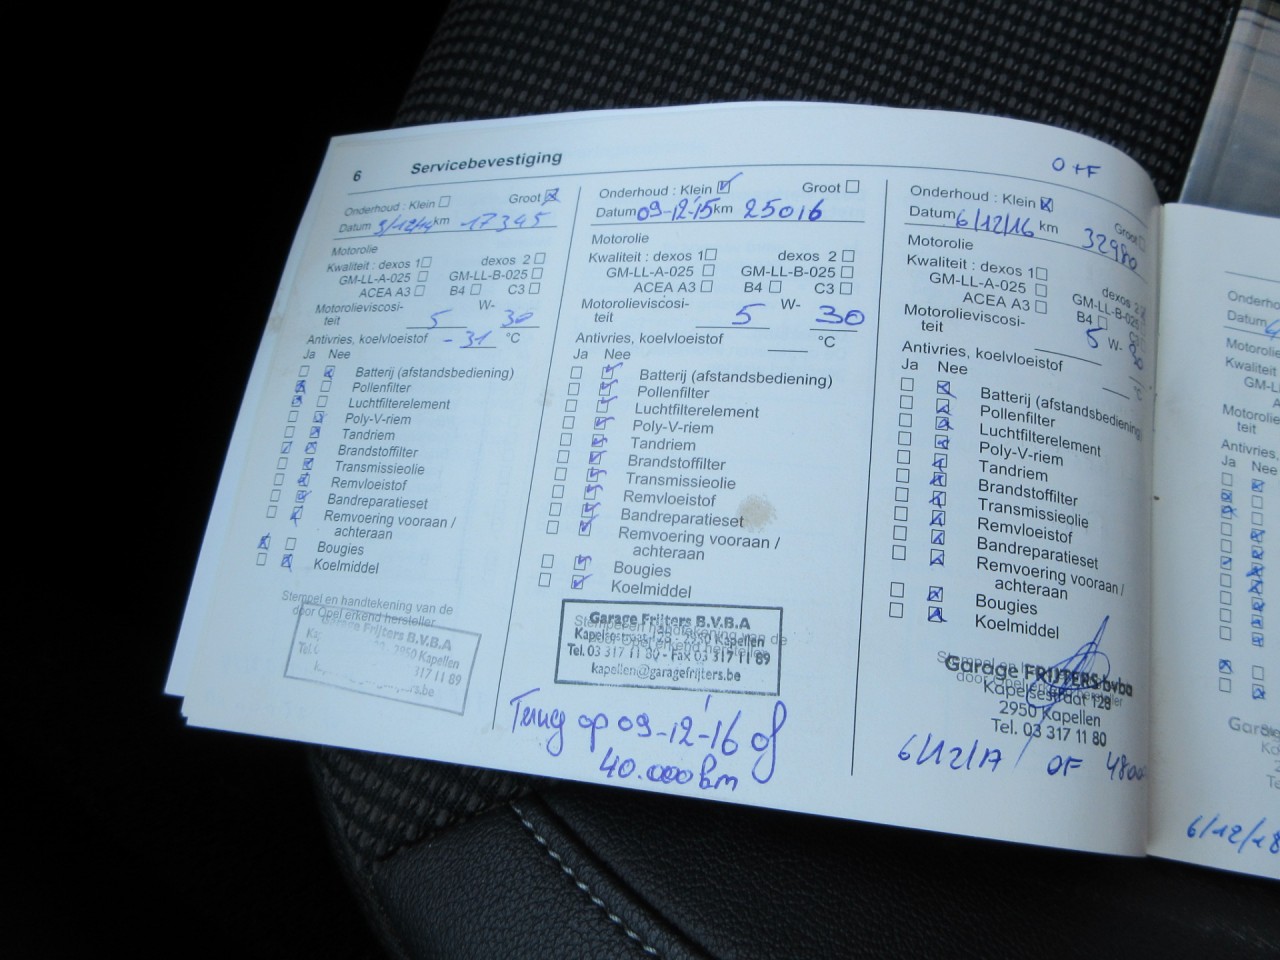 6 Servicebevestiging
O+F
Onderhoud : Klein Groot
Datum 9/12/14 km 17345
Motorolie
Kwaliteit : dexos 1 dexos 2
GM-LL-A-025 GM-LL-B-025
ACEA A3 B4 C3
Motorolieviscosi-
teit 5 W- 30
Antivries, koelvloeistof - 31 °C
Ja Nee
Batterij (afstandsbediening)
Pollenfilter
Luchtfilterelement
Poly-V-riem
Tandriem
Brandstoffilter
Transmissieolie
Remvloeistof
Bandreparatieset
Remvoering vooraan /
achteraan
Bougies
Koelmiddel
Stempel en handtekening van de
door Opel erkend hersteller
Garage Frijters B.V.B.A
2950 Kapellen
Tel. 317 11 89
Onderhoud : Klein Groot
Datum 09-12-15 km 25016
Motorolie
Kwaliteit : dexos 1 dexos 2
GM-LL-A-025 GM-LL-B-025
ACEA A3 B4 C3
Motorolieviscosi-
teit 5 W- 30
Antivries, koelvloeistof °C
Ja Nee
Batterij (afstandsbediening)
Pollenfilter
Luchtfilterelement
Poly-V-riem
Tandriem
Brandstoffilter
Transmissieolie
Remvloeistof
Bandreparatieset
Remvoering vooraan /
achteraan
Bougies
Koelmiddel
Stempel en handtekening van de
Garage Frijters B.V.B.A
Kapelsestraat 128 - 2950 Kapellen
Tel. 03 317 11 80 - Fax 03 317 11 89
kapellen@garagefrijters.be
Terug op 09-12-'16 of
40.000 km
Onderhoud : Klein Groot
Datum 6/12/16 km 32980
Motorolie
Kwaliteit : dexos 1 dexos 2
GM-LL-A-025 GM-LL-B-025
ACEA A3 B4 C3
Motorolieviscosi-
teit 5 W- 30
Antivries, koelvloeistof °C
Ja Nee
Batterij (afstandsbediening)
Pollenfilter
Luchtfilterelement
Poly-V-riem
Tandriem
Brandstoffilter
Transmissieolie
Remvloeistof
Bandreparatieset
Remvoering vooraan /
achteraan
Bougies
Koelmiddel
Stempel en
Garage FRIJTERS bvba
Kapelsestraat 128
2950 Kapellen
Tel. 03 317 11 80
6/12/17 OF
Onderho
Datum
Motorolie
Kwaliteit
GM-L
Motorolie
teit
Antivries,
Ja Nee
6/12/18